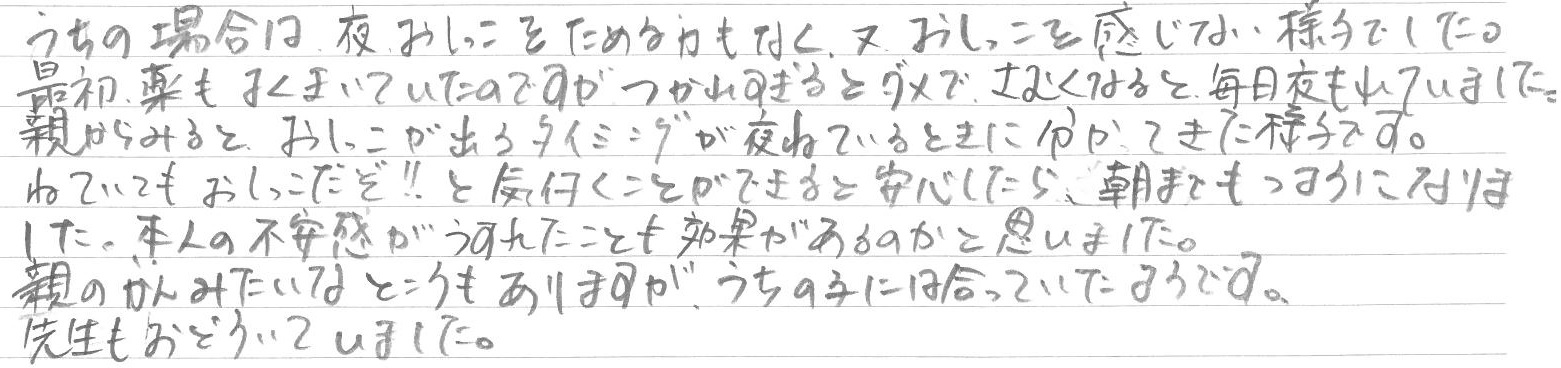 うちの場合は、夜、おしっこをためる力もなく、又、おしっこを感じない様子でした。
最初、薬もよくきいていたのですが、つかれすぎるとダメで、さむくなると、毎日夜もれていました。
親からみると、おしっこが出るタイミングが夜ねているときに分かってきた様子です。
ねていてもおしっこだぞ!!と気付くことができると安心したら、朝までもつようになりま
した。本人の不安感がうすれたことも効果があるのかと思いました。
親のかんみたいなところもありますが、うちの子には合っていたようです。
先生もおどろいていました。